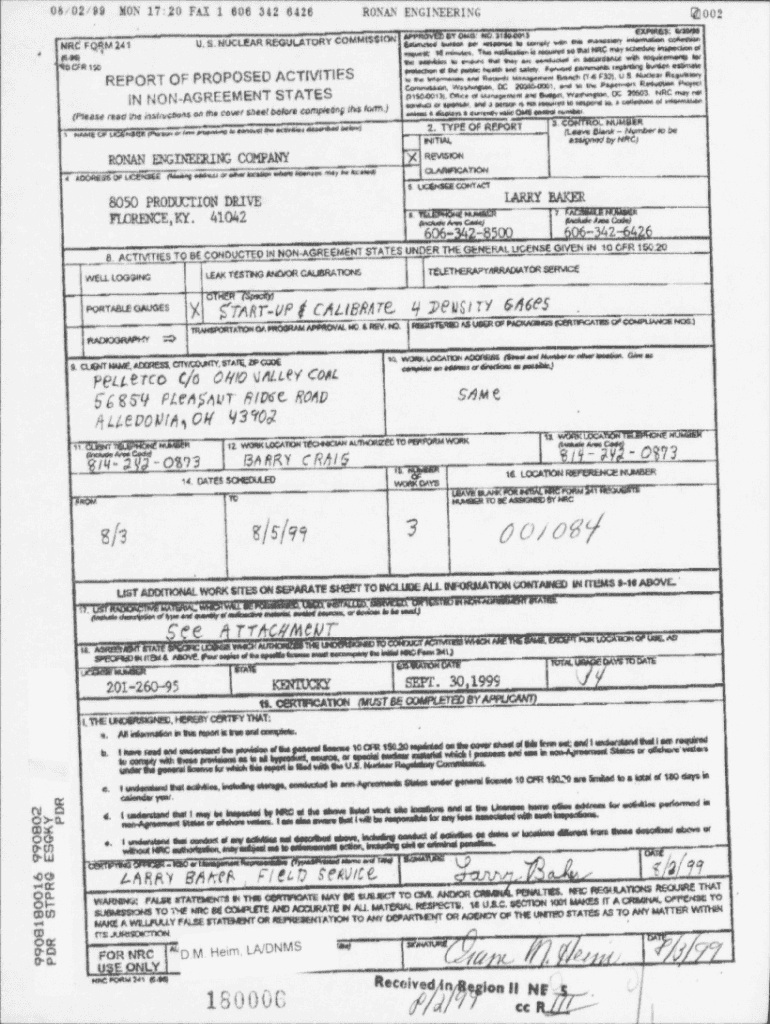 08/02/99 MON 17:20 FAX 1 606 342 6426 RONAN ENGINEERING 002
NRC FORM 241
(6-96)
10 CFR 150
U. S. NUCLEAR REGULATORY COMMISSION
REPORT OF PROPOSED ACTIVITIES
IN NON-AGREEMENT STATES
(Please read the instructions on the cover sheet before completing this form.)
APPROVED BY OMB: NO. 3150-0013 EXPIRES: 6/30/99
Estimated burden per response to comply with this mandatory information collection
request: 15 minutes. This notification is required so that NRC may schedule inspection of
the activities to ensure that they are conducted in accordance with requirements for
protection of the public health and safety. Forward comments regarding burden estimate
to the Information and Records Management Branch (T-6 F33), U.S. Nuclear Regulatory
Commission, Washington, DC 20555-0001, and to the Paperwork Reduction Project
(3150-0013), Office of Management and Budget, Washington, DC 20503. NRC may not
conduct or sponsor, and a person is not required to respond to, a collection of information
unless it displays a currently valid OMB control number.
1. NAME OF LICENSEE (Person or firm proposing to conduct the activities described below)
RONAN ENGINEERING COMPANY
2. TYPE OF REPORT
INITIAL
X REVISION
CLARIFICATION
3. CONTROL NUMBER
(Leave Blank - Number to be
assigned by NRC)
4. ADDRESS OF LICENSEE (Mailing address or other location where licensee may be located)
8050 PRODUCTION DRIVE
FLORENCE,KY. 41042
5. LICENSEE CONTACT
LARRY BAKER
6. TELEPHONE NUMBER
(Include Area Code)
606-342-8500
7. FACSIMILE NUMBER
(Include Area Code)
606-342-6426
8. ACTIVITIES TO BE CONDUCTED IN NON-AGREEMENT STATES UNDER THE GENERAL LICENSE GIVEN IN 10 CFR 150.20
WELL LOGGING
LEAK TESTING AND/OR CALIBRATIONS
TELETHERAPY/IRRADIATOR SERVICE
PORTABLE GAUGES
X OTHER (Specify)
START-UP & CALIBRATE 4 DENSITY GAGES
RADIOGRAPHY ⇒
TRANSPORTATION QA PROGRAM APPROVAL NO. & REV. NO.
REGISTERED AS USER OF PACKAGINGS (CERTIFICATES OF COMPLIANCE NOS.)
9. CLIENT NAME, ADDRESS, CITY/COUNTY, STATE, ZIP CODE
PELLETCO C/O OHIO VALLEY COAL
56854 PLEASANT RIDGE ROAD
ALLEDONIA, OH 43902
10. WORK LOCATION ADDRESS (Street and Number or other location. Give as
complete an address or directions as possible.)
SAME
11. CLIENT TELEPHONE NUMBER
(Include Area Code)
814-242-0873
12. WORK LOCATION TECHNICIAN AUTHORIZED TO PERFORM WORK
BARRY CRAIG
13. WORK LOCATION TELEPHONE NUMBER
(Include Area Code)
814-242-0873
14. DATES SCHEDULED
FROM
8/3
TO
8/5/99
15. NUMBER
WORK DAYS
3
16. LOCATION REFERENCE NUMBER
LEAVE BLANK FOR INITIAL NRC FORM 241 REQUESTS
NUMBER TO BE ASSIGNED BY NRC
001084
LIST ADDITIONAL WORK SITES ON SEPARATE SHEET TO INCLUDE ALL INFORMATION CONTAINED IN ITEMS 9-16 ABOVE.
17. LIST RADIOACTIVE MATERIAL, WHICH WILL BE POSSESSED, USED, INSTALLED, SERVICED, OR TESTED IN NON-AGREEMENT STATES
(Include description of type and quantity of radioactive material, sealed sources, or devices to be used.)
SEE ATTACHMENT
18. AGREEMENT STATE SPECIFIC LICENSE WHICH AUTHORIZES THE UNDERSIGNED TO CONDUCT ACTIVITIES WHICH ARE THE SAME, EXCEPT FOR LOCATION OF USE, AS
SPECIFIED IN ITEM 8. ABOVE. (Four copies of the specific license must accompany the initial NRC Form 241.)
LICENSE NUMBER
201-260-95
STATE
KENTUCKY
EXPIRATION DATE
SEPT. 30,1999
TOTAL USAGE DAYS TO DATE
14
19. CERTIFICATION (MUST BE COMPLETED BY APPLICANT)
I, THE UNDERSIGNED, HEREBY CERTIFY THAT:
a. All information in this report is true and complete.
b. I have read and understand the provision of the general license 10 CFR 150.20 reprinted on the cover sheet of this form set; and I understand that I am required
to comply with these provisions as to all byproduct, source, or special nuclear material which I possess and use in non-Agreement States or offshore waters
under the general license for which this report is filed with the U.S. Nuclear Regulatory Commission.
c. I understand that activities, including storage, conducted in non-Agreement States under general license 10 CFR 150.20 are limited to a total of 180 days in
calendar year.
d. I understand that I may be inspected by NRC at the above listed work site locations and at the Licensee home office address for activities performed in
non-Agreement States or offshore waters. I am also aware that I will be responsible for any fees associated with such inspections.
e. I understand that conduct of any activities not described above, including conduct of activities on dates or locations different from those described above or
without NRC authorization, may subject me to enforcement action, including civil or criminal penalties.
CERTIFYING OFFICER - RSO or Management Representative (Typed/Printed Name and Title)
LARRY BAKER, FIELD SERVICE
SIGNATURE
Larry Baker
DATE
8/2/99
WARNING: FALSE STATEMENTS IN THIS CERTIFICATE MAY BE SUBJECT TO CIVIL AND/OR CRIMINAL PENALTIES. NRC REGULATIONS REQUIRE THAT
SUBMISSIONS TO THE NRC BE COMPLETE AND ACCURATE IN ALL MATERIAL RESPECTS. 18 U.S.C. SECTION 1001 MAKES IT A CRIMINAL OFFENSE TO
MAKE A WILLFULLY FALSE STATEMENT OR REPRESENTATION TO ANY DEPARTMENT OR AGENCY OF THE UNITED STATES AS TO ANY MATTER WITHIN
ITS JURISDICTION.
FOR NRC
USE ONLY
D.M. Heim, LA/DNMS
SIGNATURE
DATE
8/3/99
NRC FORM 241 (6-96)
180006
Received in Region II
8/2/99
cc R III
9908180016 990802
PDR STPRG ESGKY
PDR